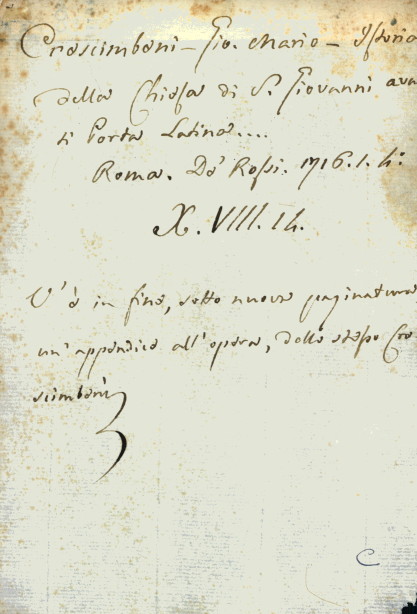 Crescimbeni - Gio. Mario - Istoria
della Chiesa di S. Giovanni avan
ti Porta Latina....
Roma. De' Rossi. 1716. 1. 4:
X. VIII. 14.
V'è in fine, sotto nuova paginatura
un' appendice all'opera, dello stesso Cre
scimbeni
C